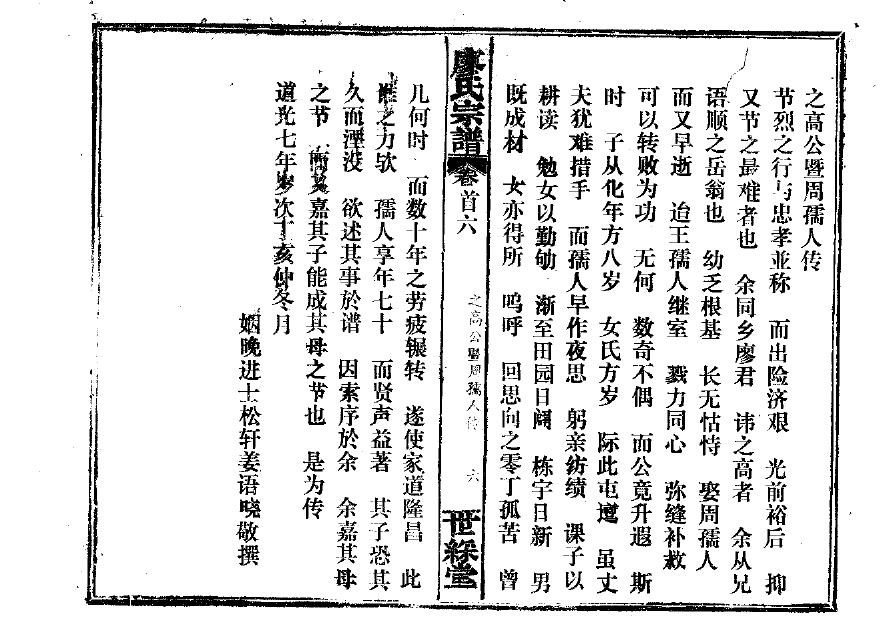 之高公暨周孺人传
节烈之行与忠孝並称 而出险济艰 光前裕后 抑
又节之最难者也 余同乡廖君 讳之高者 余从兄
语顺之岳翁也 幼乏根基 长无怙恃 娶周孺人
而又早逝 迨王孺人继室 戮力同心 弥缝补救
可以转败为功 无何 数奇不偶 而公竟升遐 斯
时 子从化年方八岁 女氏方岁 际此屯邅 虽丈
夫犹难措手 而孺人早作夜思 躬亲纺绩 课子以
耕读 勉女以勤劬 渐至田园日阔 栋宇日新 男
既成材 女亦得所 呜呼 回思向之零丁孤苦 曾
廖氏宗譜 卷首六 之高公暨周孺人传 六 世綵堂
几何时 而数十年之劳疲辗转 遂使家道隆昌 此
谁之力欤 孺人享年七十 而贤声益著 其子恐其
久而湮没 欲述其事於谱 因索序於余 余嘉其母
之节 而又嘉其子能成其母之节也 是为传
道光七年岁次丁亥仲冬月
姻晚进士松轩姜语晓敬撰